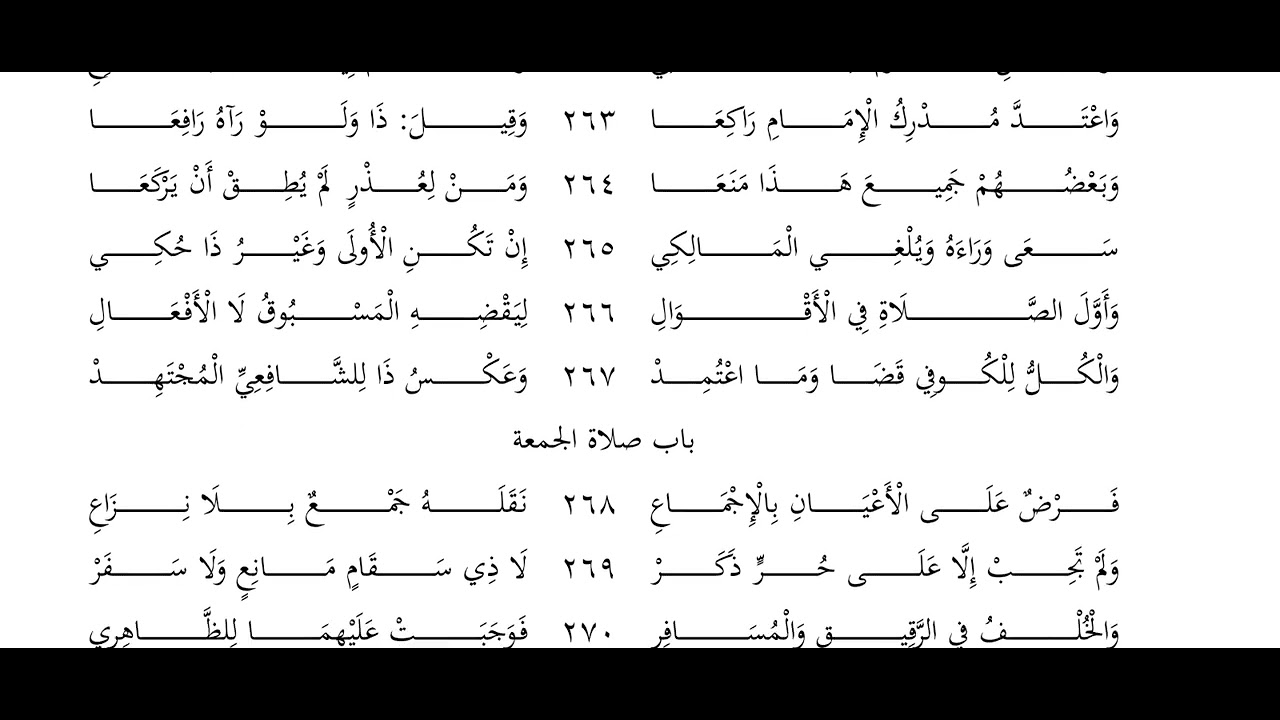 وَاعْتَدَّ مُدْرِكُ الْإِمَامِ رَاكِعَا ٢٦٣ وَقِيلَ: ذَا وَلَوْ رَآهُ رَافِعَا
وَبَعْضُهُمْ جَمِيعَ هَذَا مَنَعَا ٢٦٤ وَمَنْ لِعُذْرٍ لَمْ يُطِقْ أَنْ يَرْكَعَا
سَعَى وَرَاءَهُ وَيُلْغِي الْمَالِكِي ٢٦٥ إِنْ تَكُنِ الْأُولَى وَغَيْرُ ذَا حُكِي
وَأَوَّلَ الصَّلَاةِ فِي الْأَقْوَالِ ٢٦٦ لِيَقْضِهِ الْمَسْبُوقُ لَا الْأَفْعَالِ
وَالْكُلُّ لِلْكُوفِي قَضَا وَمَا اعْتُمِدْ ٢٦٧ وَعَكْسُ ذَا لِلشَّافِعِيِّ الْمُجْتَهِدْ
باب صلاة الجمعة
فَرْضٌ عَلَى الْأَعْيَانِ بِالْإِجْمَاعِ ٢٦٨ نَقَلَهُ جَمْعٌ بِلَا نِزَاعِ
وَلَمْ تَجِبْ إِلَّا عَلَى حُرٍّ ذَكَرْ ٢٦٩ لَا ذِي سَقَامٍ مَانِعٍ وَلَا سَفَرْ
وَالْخُلْفُ فِي الرَّقِيقِ وَالْمُسَافِرِ ٢٧٠ فَوَجَبَتْ عَلَيْهِمَا لِلظَّاهِرِي